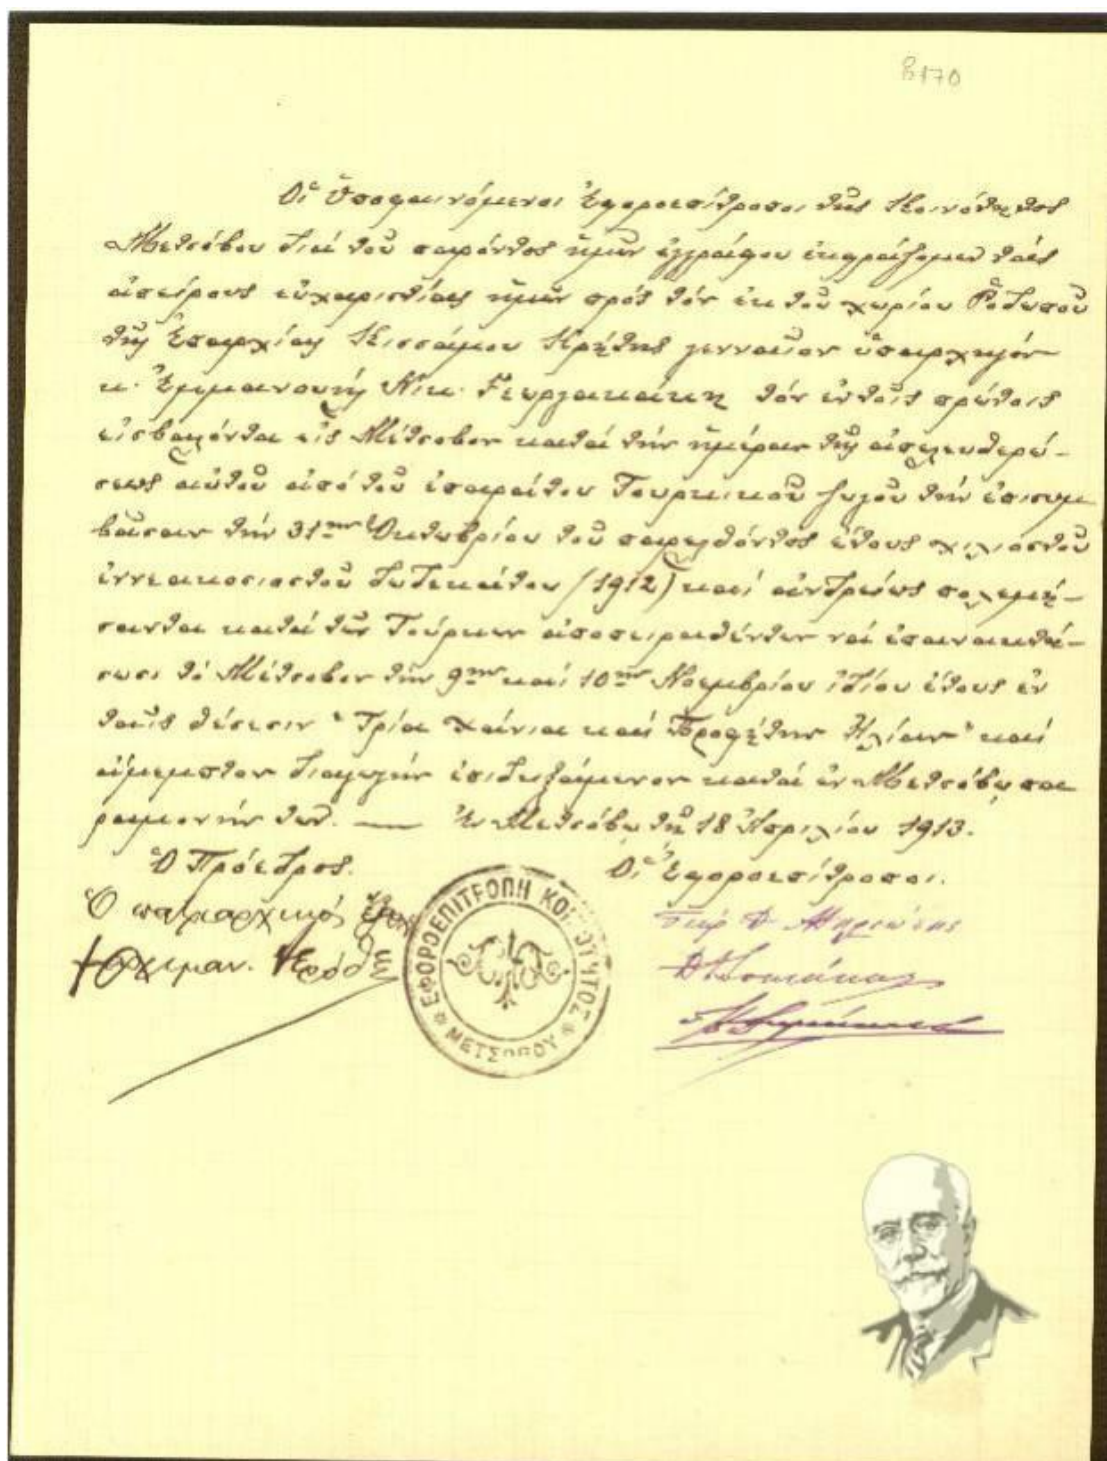 8170
Οἱ Ὑποφαινόμενοι Ἐφοροεπίτροποι τῆς Κοινότητος
Μετσόβου διὰ τοῦ παρόντος ἡμῶν ἐγγράφου ἐκφράζομεν τὰς
ἀπείρους εὐχαριστίας ἡμῶν πρὸς τὸν ἐκ τοῦ χωρίου Ροδωποῦ
τῆς Ἐπαρχίας Κισσάμου Κρήτης γενναῖον ὑπαρχηγὸν
κ. Ἐμμανουὴλ Νικ. Γεωργακάκη τὸν ἐν τοῖς πρώτοις
εἰσβαλόντα εἰς Μέτσοβον κατὰ τὴν ἡμέραν τῆς ἀπελευθερώ-
σεως αὐτοῦ ἀπὸ τοῦ ἐπαράτου Τουρκικοῦ ζυγοῦ τὴν ἐπισυμ
βᾶσαν τὴν 31ην Ὀκτωβρίου τοῦ παρελθόντος ἔτους χιλιοστοῦ
ἐννεακοσιοστοῦ δωδεκάτου (1912) καὶ ἀνδρείως πολεμή-
σαντα κατὰ τῶν Τούρκων ἀποπειραθέντων νὰ ἐπανακτή-
σωσι τὸ Μέτσοβον τὴν 9ην καὶ 10ην Νοεμβρίου ἰδίου ἔτους ἐν
ταῖς θέσεσιν "Τρία Χάνια καὶ Προφήτην Ἠλίαν" καὶ
ἄμεμπτον διαγωγὴν ἐπιδειξάμενον κατὰ ἐν Μετσόβῳ πα
ραμονήν των. — Ἐν Μετσόβῳ τῇ 18 Ἀπριλίου 1913.
Ὁ Πρόεδρος. Οἱ Ἐφοροεπίτροποι.
Ὁ πατριαρχικὸς
ΕΦΟΡΟΕΠΙΤΡΟΠΗ ΚΟΙΝΟΤΗΤΟΣ
ΜΕΤΣΟΒΟΥ